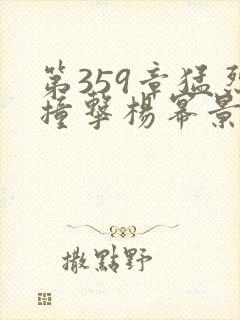 第359章猛烈
撞擊楊冪景
撒點野